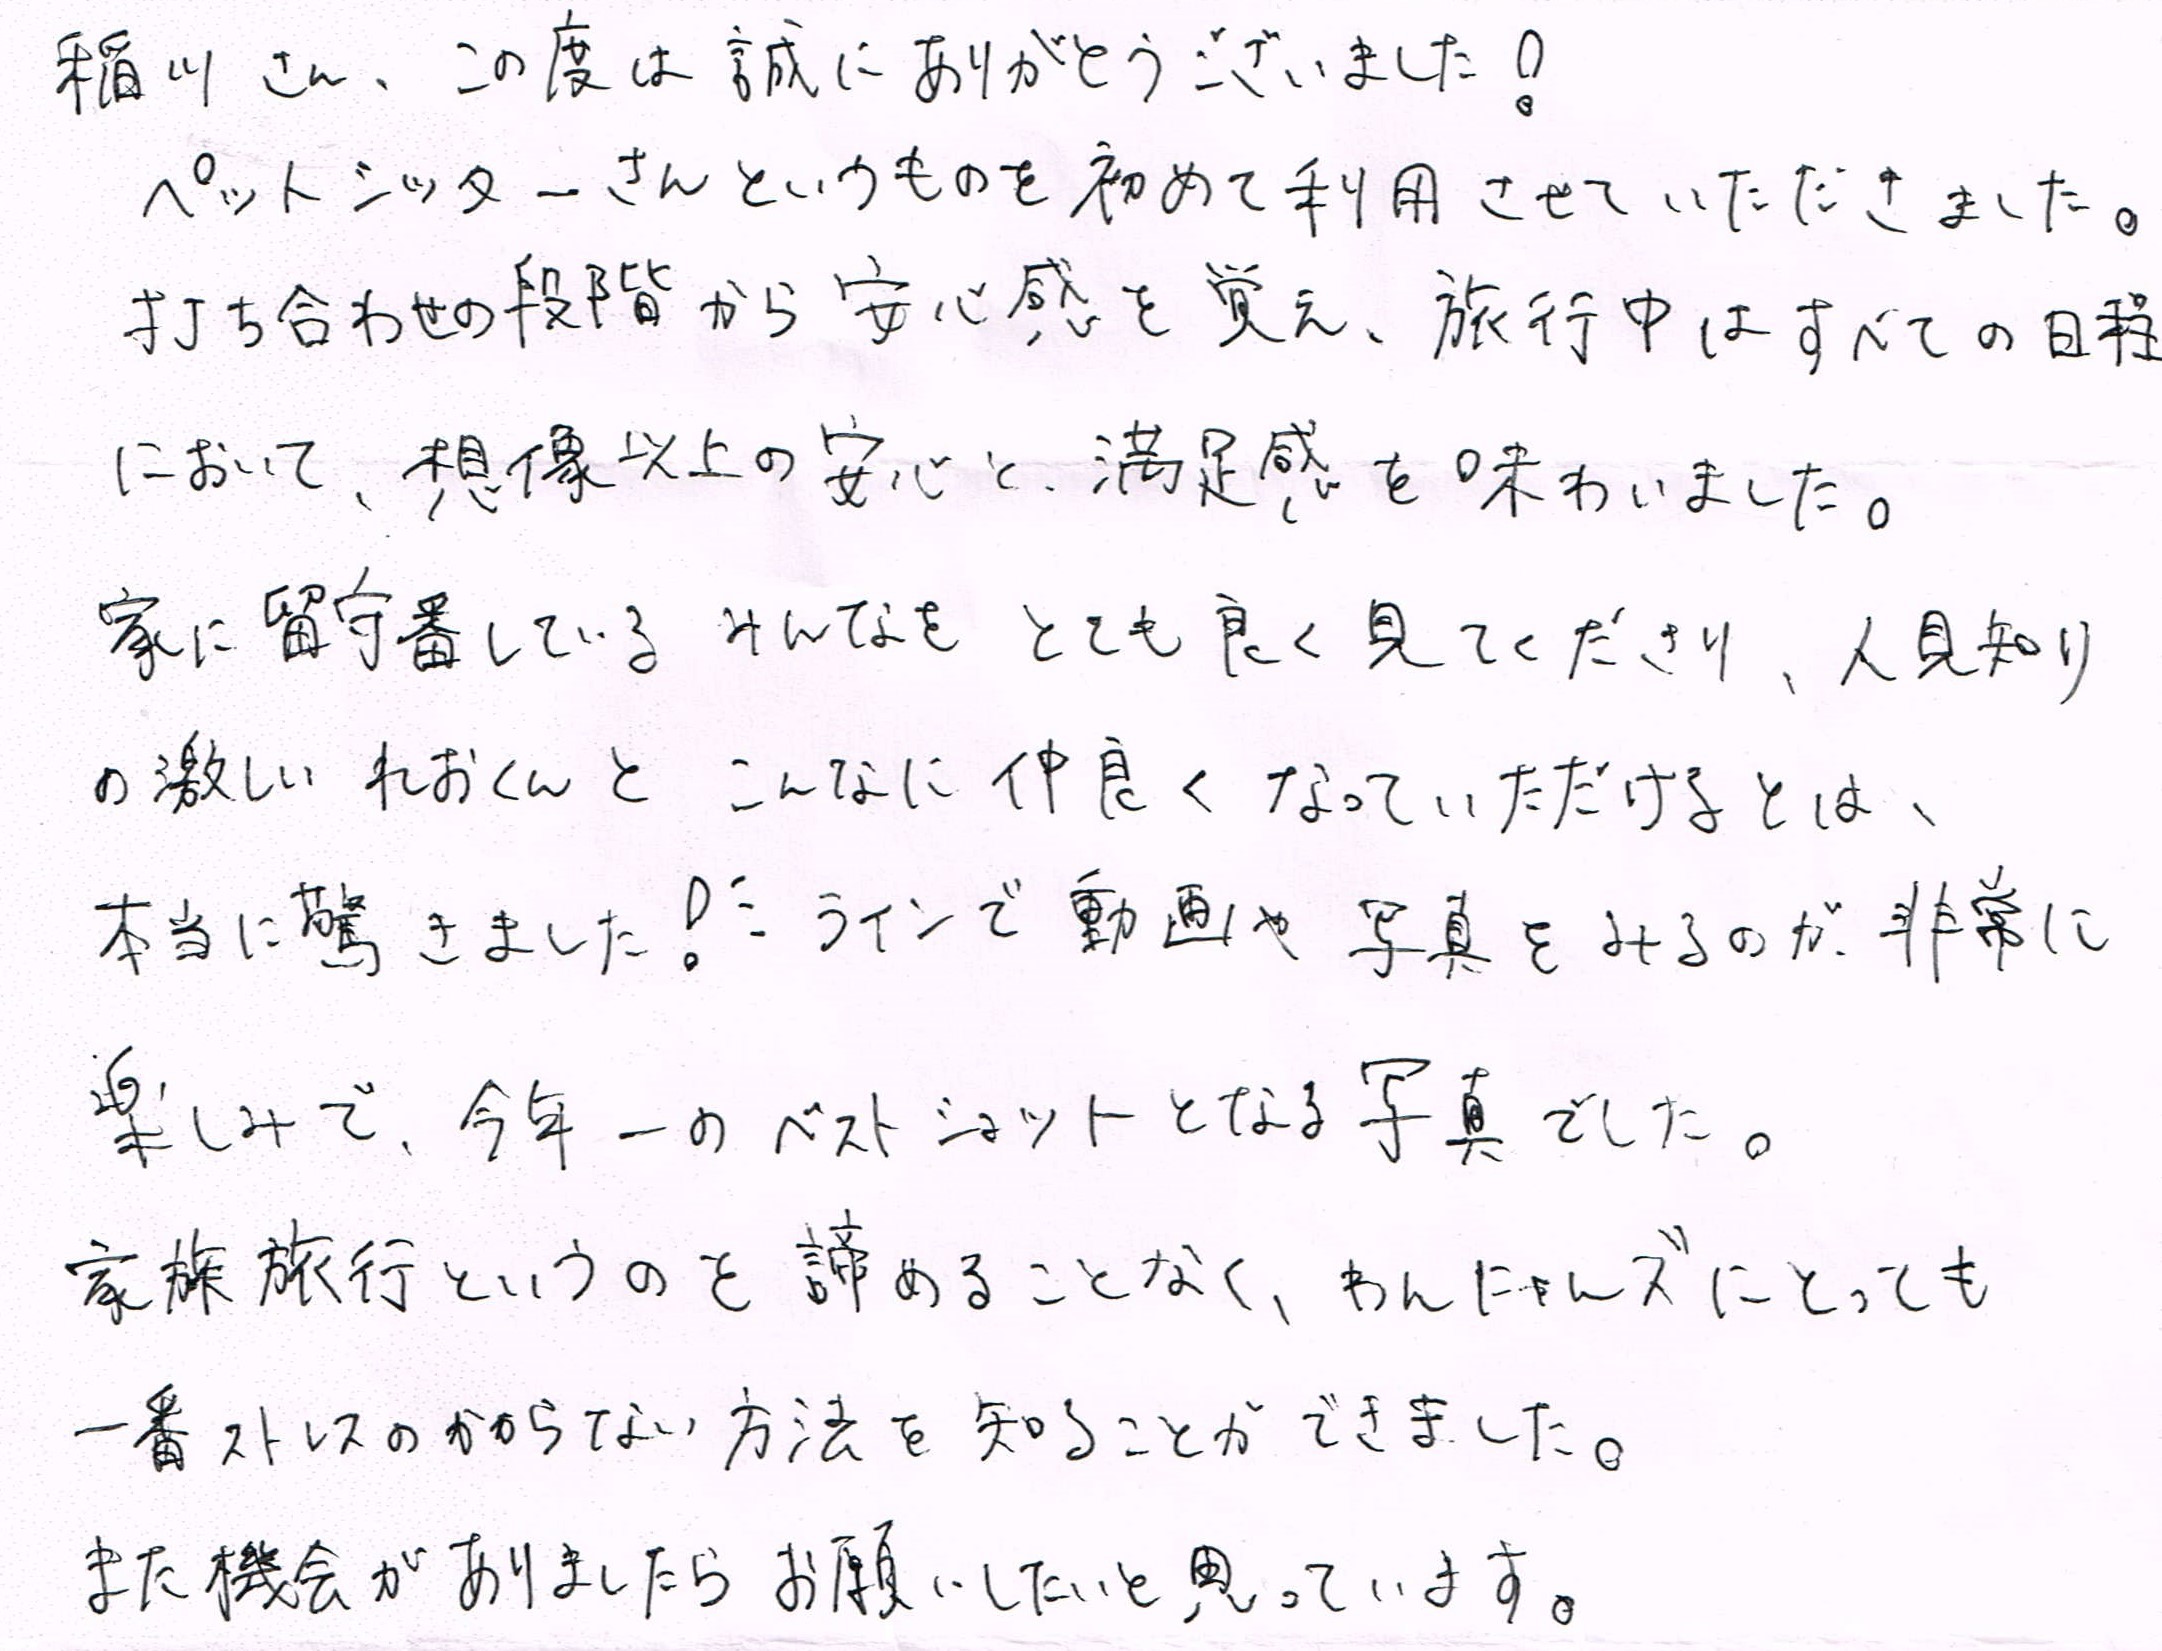 稲川さん、この度は誠にありがとうございました!
ペットシッターさんというものを初めて利用させていただきました。
打ち合わせの段階から安心感を覚え、旅行中はすべての日程
において、想像以上の安心と、満足感を味わいました。
家に留守番しているみんなをとても良く見てくださり、人見知り
の激しいれおくんとこんなに仲良くなっていただけるとは、
本当に驚きました!ラインで動画や写真をみるのが非常に
楽しみで、今年一のベストショットとなる写真でした。
家族旅行というのを諦めることなく、わんにゃんズにとっても
一番ストレスのかからない方法を知ることができました。
また機会がありましたらお願いしたいと思っています。